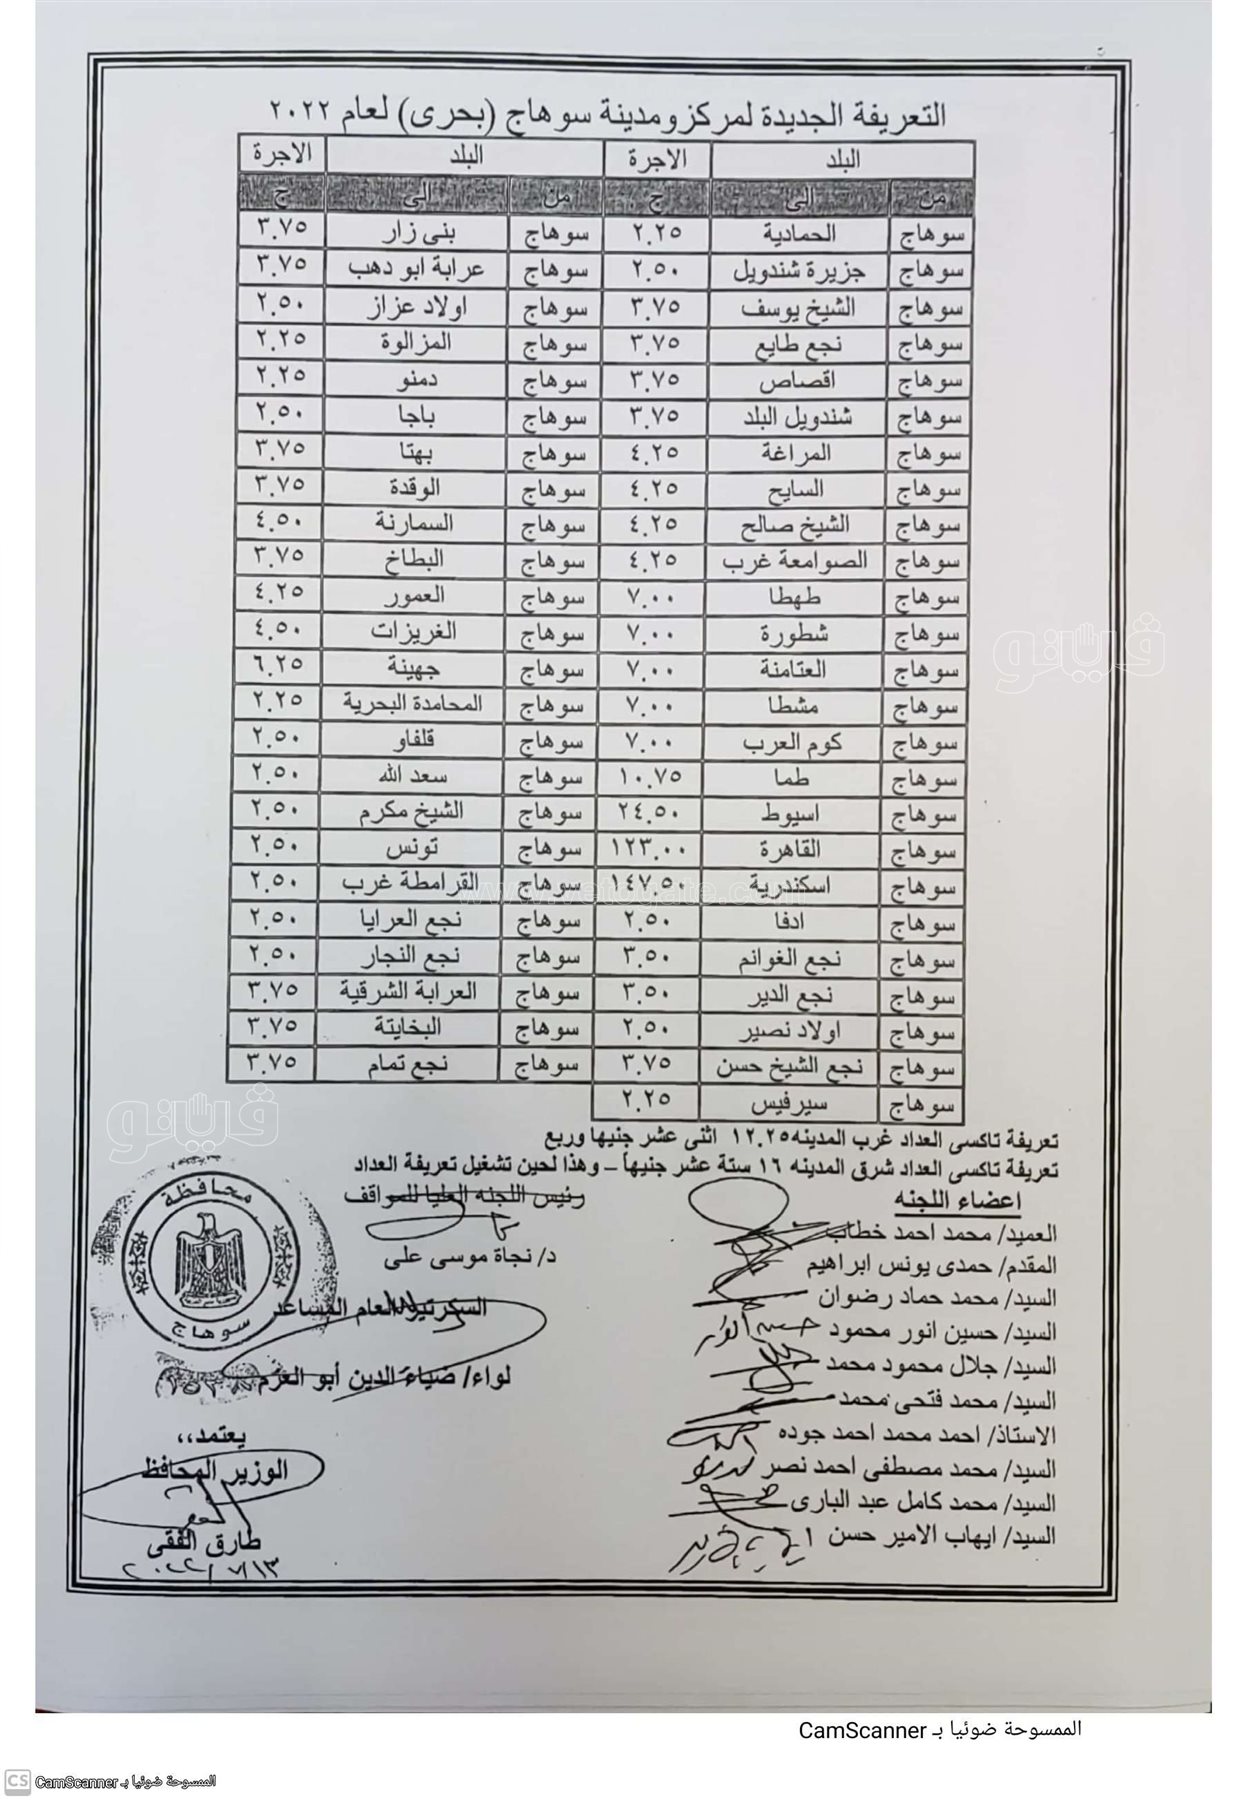 التعريفة الجديدة لمركز ومدينة سوهاج (بحرى) لعام ٢٠٢٢
البلد الاجرة البلد الاجرة
من الى ج من الى ج
سوهاج الحمادية ٢.٢٥ سوهاج بنى زار ٣.٧٥
سوهاج جزيرة شندويل ٢.٥٠ سوهاج عرابة ابو دهب ٣.٧٥
سوهاج الشيخ يوسف ٣.٧٥ سوهاج اولاد عزاز ٢.٥٠
سوهاج نجع طايع ٣.٧٥ سوهاج المزالوة ٢.٢٥
سوهاج اقصاص ٣.٧٥ سوهاج دمنو ٢.٢٥
سوهاج شندويل البلد ٣.٧٥ سوهاج باجا ٢.٥٠
سوهاج المراغة ٤.٢٥ سوهاج بهتا ٣.٧٥
سوهاج السايح ٤.٢٥ سوهاج الوقدة ٣.٧٥
سوهاج الشيخ صالح ٤.٢٥ سوهاج السمارنة ٤.٥٠
سوهاج الصوامعة غرب ٤.٢٥ سوهاج البطاخ ٣.٧٥
سوهاج طهطا ٧.٠٠ سوهاج العمور ٤.٢٥
سوهاج شطورة ٧.٠٠ سوهاج الغريزات ٤.٥٠
سوهاج العتامنة ٧.٠٠ سوهاج جهينة ٦.٢٥
سوهاج مشطا ٧.٠٠ سوهاج المحامدة البحرية ٢.٢٥
سوهاج كوم العرب ٧.٠٠ سوهاج قلفاو ٢.٥٠
سوهاج طما ١٠.٧٥ سوهاج سعد الله ٢.٥٠
سوهاج اسيوط ٢٤.٥٠ سوهاج الشيخ مكرم ٢.٥٠
سوهاج القاهرة ١٢٣.٠٠ سوهاج تونس ٢.٥٠
سوهاج اسكندرية ١٤٧.٥٠ سوهاج القرامطة غرب ٢.٥٠
سوهاج ادفا ٢.٥٠ سوهاج نجع العرايا ٢.٥٠
سوهاج نجع الغوانم ٣.٥٠ سوهاج نجع النجار ٢.٥٠
سوهاج نجع الدير ٣.٥٠ سوهاج العرابة الشرقية ٣.٧٥
سوهاج اولاد نصير ٢.٥٠ سوهاج البخايتة ٣.٧٥
سوهاج نجع الشيخ حسن ٣.٧٥ سوهاج نجع تمام ٣.٧٥
سوهاج سيرفيس ٢.٢٥
تعريفة تاكسى العداد غرب المدينه ١٢.٢٥ اثنى عشر جنيها وربع
تعريفة تاكسى العداد شرق المدينه ١٦ ستة عشر جنيهاً – وهذا لحين تشغيل تعريفة العداد
اعضاء اللجنه رئيس اللجنه العليا للمواقف
العميد/ محمد احمد خطاب
د/ نجاة موسى على
المقدم/ حمدى يونس ابراهيم
السيد/ محمد حماد رضوان
السكرتير العام المساعد
السيد/ حسين انور محمود
السيد/ جلال محمود محمد
لواء/ ضياء الدين أبو العزم
السيد/ محمد فتحى محمد
الاستاذ/ احمد محمد احمد جوده
يعتمد،،
السيد/ محمد مصطفى احمد نصر
الوزير المحافظ
السيد/ محمد كامل عبد البارى
السيد/ ايهاب الامير حسن
طارق الفقى
٢٠٢٢/٧/١٣
محافظة
سوهاج
فيتو
فيتو
الممسوحة ضوئيا بـ CamScanner
CS الممسوحة ضوئيا بـ CamScanner